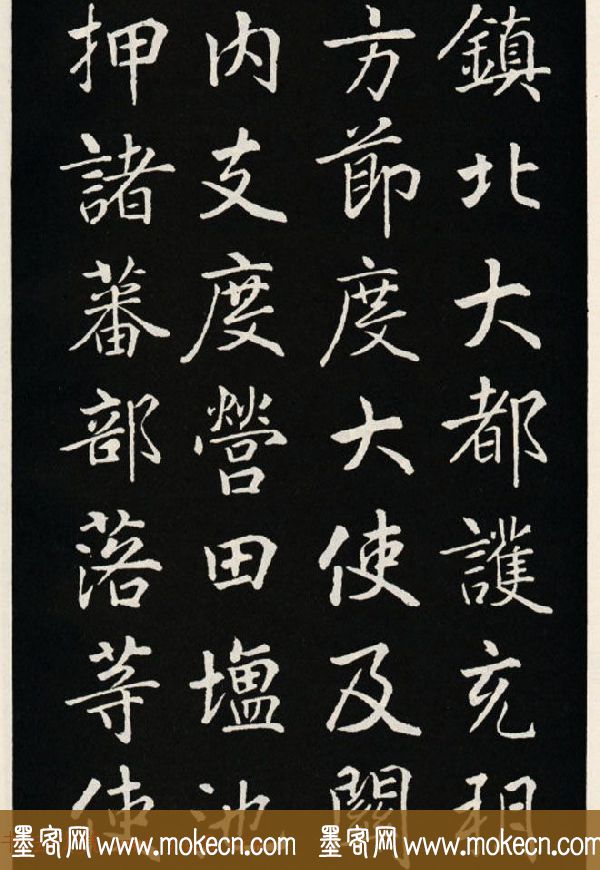 鎮北大都護充朔
方節度大使及關
内支度營田塩池
押諸蕃部落等使
墨客网 www.mokecn.com 墨客网 www.mokecn.com